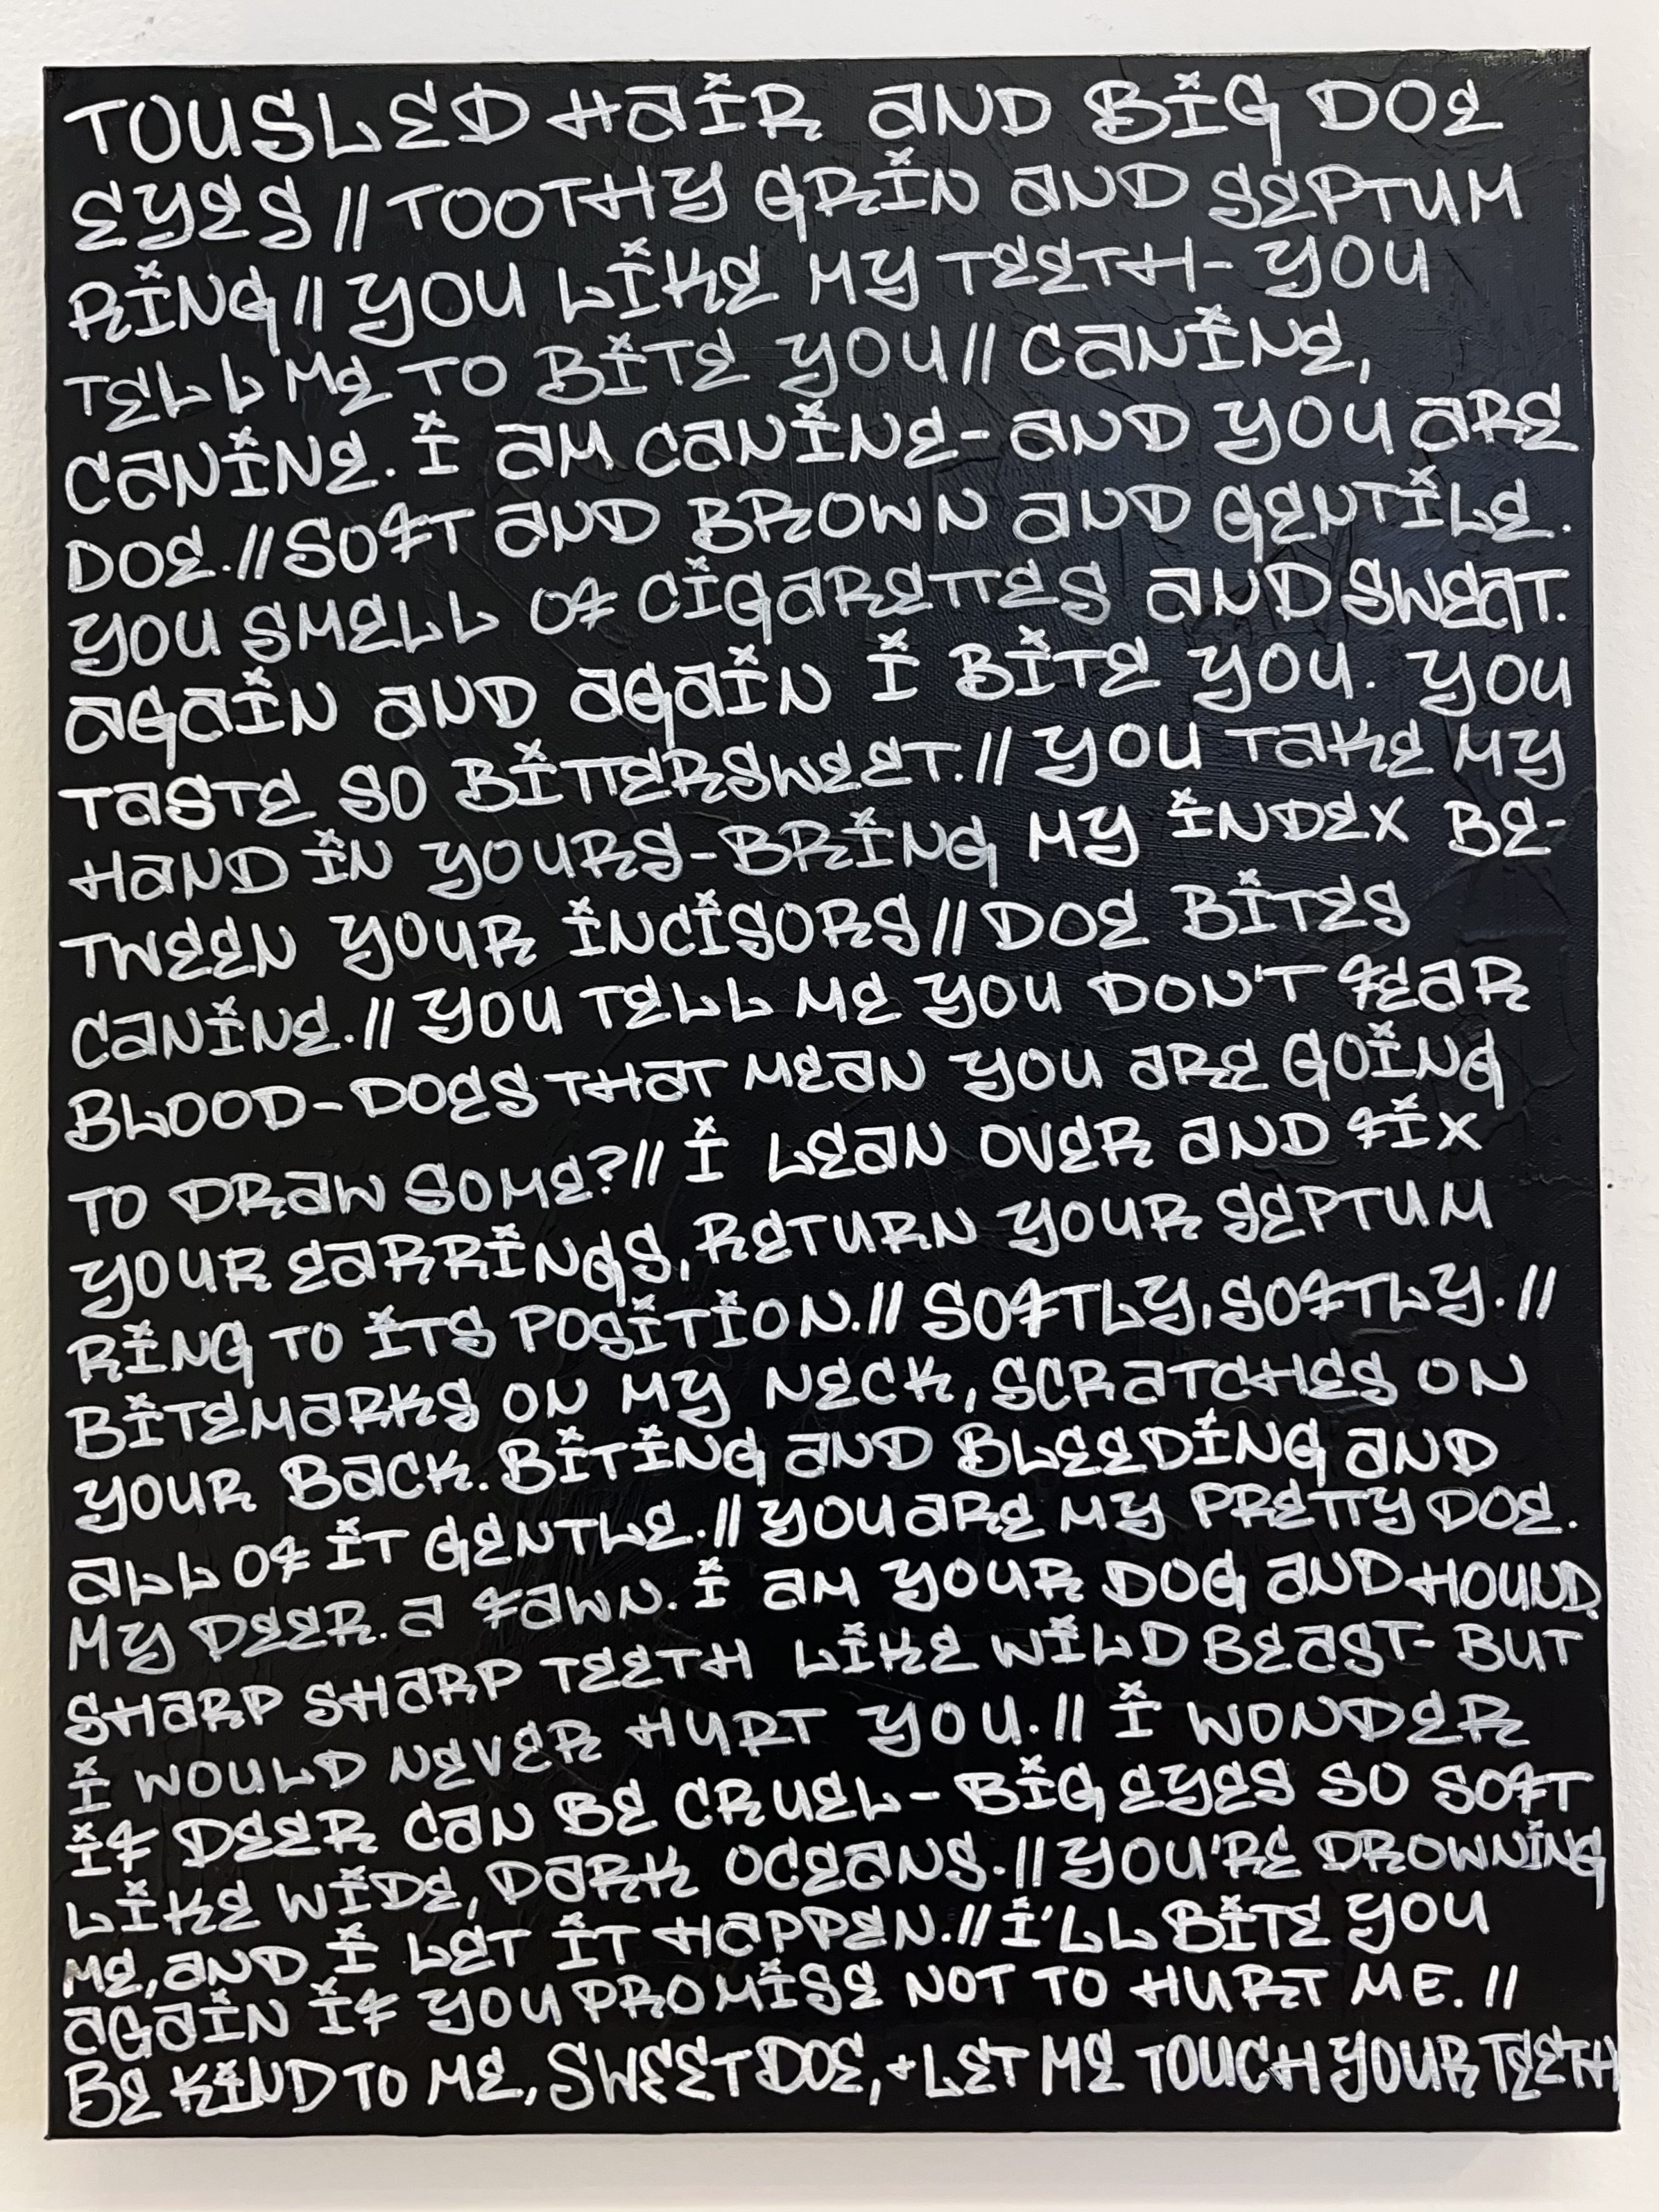 TOUSLED HAIR AND BIG DOE
EYES // TOOTHY GRIN AND SEPTUM
RING // YOU LIKE MY TEETH- YOU
TELL ME TO BITE YOU // CANINE,
CANINE. I AM CANINE- AND YOU ARE
DOE. // SOFT AND BROWN AND GENTILE.
YOU SMELL OF CIGARETTES AND SWEAT.
AGAIN AND AGAIN I BITE YOU. YOU
TASTE SO BITTERSWEET. // YOU TAKE MY
HAND IN YOURS-BRING MY INDEX BE-
TWEEN YOUR INCISORS // DOE BITES
CANINE. // YOU TELL ME YOU DON'T FEAR
BLOOD-DOES THAT MEAN YOU ARE GOING
TO DRAW SOME? // I LEAN OVER AND FIX
YOUR EARRINGS, RETURN YOUR SEPTUM
RING TO ITS POSITION. // SOFTLY, SOFTLY. //
BITEMARKS ON MY NECK, SCRATCHES ON
YOUR BACK. BITING AND BLEEDING AND
ALL OF IT GENTLE. // YOU ARE MY PRETTY DOE.
MY DEER. A FAWN. I AM YOUR DOG AND HOUND.
SHARP SHARP TEETH LIKE WILD BEAST- BUT
I WOULD NEVER HURT YOU. // I WONDER
IF DEER CAN BE CRUEL- BIG EYES SO SOFT
LIKE WIDE, DARK OCEANS. // YOU'RE DROWNING
ME, AND I LET IT HAPPEN. // I'LL BITE YOU
AGAIN IF YOU PROMISE NOT TO HURT ME. //
BE KIND TO ME, SWEET DOE, + LET ME TOUCH YOUR TEETH